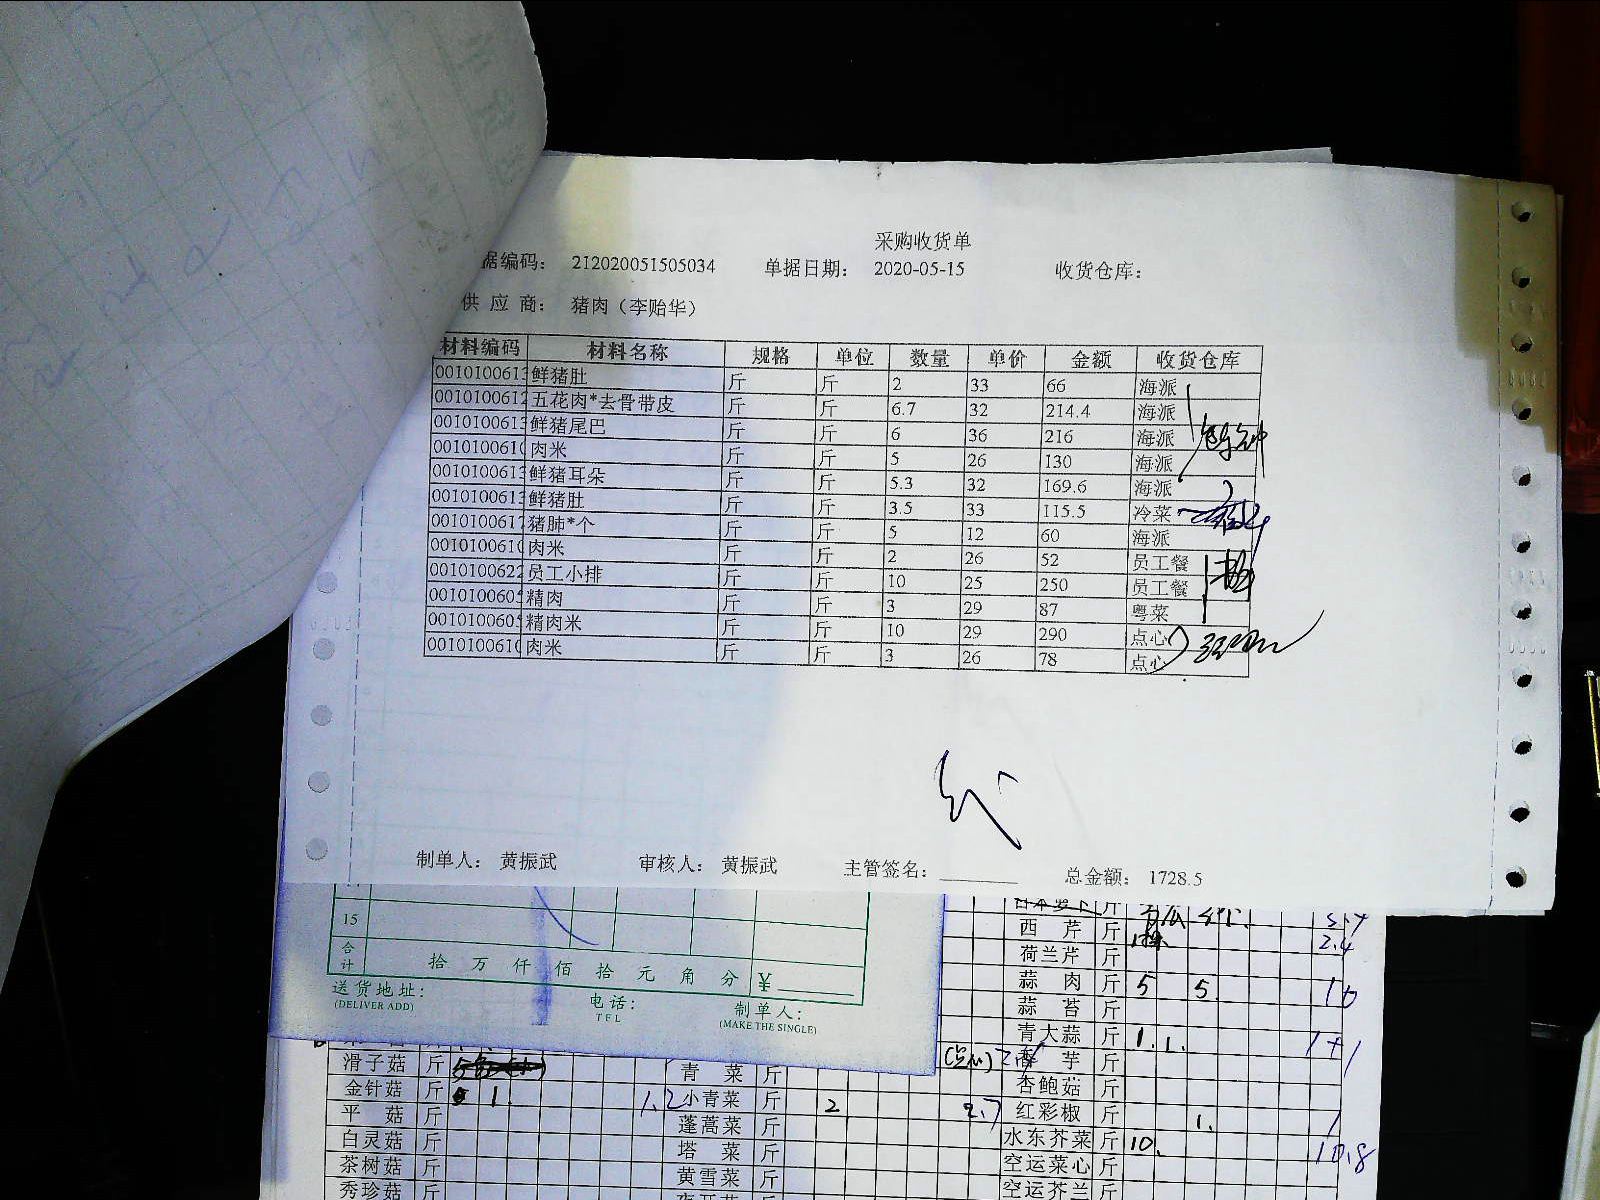 采购收货单
据编码： 212020051505034 单据日期： 2020-05-15 收货仓库：
供 应 商： 猪肉（李贻华）
材料编码 材料名称 规格 单位 数量 单价 金额 收货仓库
0010100613 鲜猪肚 斤 斤 2 33 66 海派
0010100612 五花肉*去骨带皮 斤 斤 6.7 32 214.4 海派
0010100613 鲜猪尾巴 斤 斤 6 36 216 海派
0010100610 肉米 斤 斤 5 26 130 海派
0010100613 鲜猪耳朵 斤 斤 5.3 32 169.6 海派
0010100613 鲜猪肚 斤 斤 3.5 33 115.5 冷菜
0010100617 猪肺*个 斤 斤 5 12 60 海派
0010100610 肉米 斤 斤 2 26 52 员工餐
0010100622 员工小排 斤 斤 10 25 250 员工餐
0010100605 精肉 斤 斤 3 29 87 粤菜
0010100605 精肉米 斤 斤 10 29 290 点心
0010100610 肉米 斤 斤 3 26 78 点心
制单人： 黄振武 审核人： 黄振武 主管签名： 总金额： 1728.5
15
合计 拾 万 仟 佰 拾 元 角 分 ¥
送货地址： 电话： 制单人：
(DELIVER ADD) TEL (MAKE THE SINGLE)
日本萝卜 斤
西 芹 斤 2.4
荷兰芹 斤
蒜 肉 斤 5 5 10
蒜 苔 斤
青大蒜 斤 1. 1. 1+1
滑子菇 斤 青 菜 斤 (点心) 香 芋 斤
金针菇 斤 1. 1.2 小青菜 斤 2 2.7 杏鲍菇 斤
平 菇 斤 蓬蒿菜 斤 红彩椒 斤 1. 1
白灵菇 斤 塔 菜 斤 水东芥菜 斤 10. 10.8
茶树菇 斤 黄雪菜 斤 空运菜心 斤
秀珍菇 斤 空运芥兰 斤